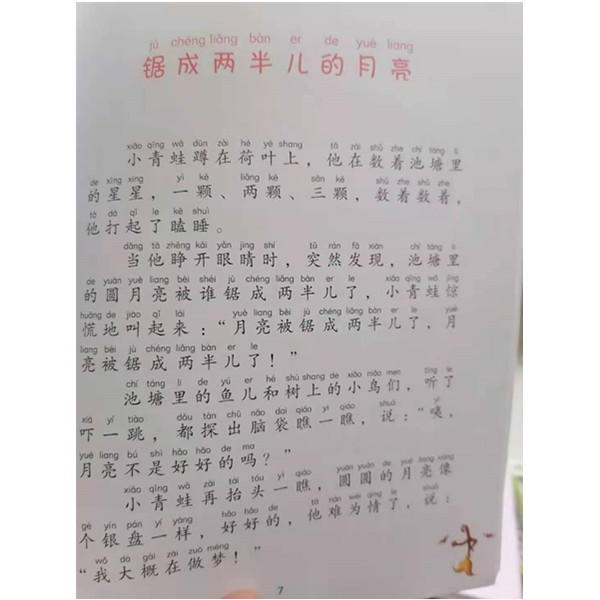 jù chéng liǎng bàn er de yuè liang
锯成两半儿的月亮
xiǎo qīng wā dūn zài hé yè shang tā zài shǔ zhe chí táng li
小青蛙蹲在荷叶上，他在数着池塘里
de xīng xing yì kē liǎng kē sān kē shǔ zhe shǔ zhe
的星星，一颗、两颗、三颗，数着数着，
tā dǎ qǐ le kē shuì
他打起了瞌睡。
dāng tā zhēng kāi yǎn jing shí tū rán fā xiàn chí táng li
当他睁开眼睛时，突然发现，池塘里
de yuán yuè liang bèi shéi jù chéng liǎng bàn er le xiǎo qīng wā jīng
的圆月亮被谁锯成两半儿了，小青蛙惊
huāng de jiào qǐ lái yuè liang bèi jù chéng liǎng bàn er le yuè
慌地叫起来：“月亮被锯成两半儿了，月
liang bèi jù chéng liǎng bàn er le
亮被锯成两半儿了！”
chí táng li de yú er hé shù shang de xiǎo niǎo men tīng le
池塘里的鱼儿和树上的小鸟们，听了
xià yí tiào dōu tàn chū nǎo dai qiáo yi qiáo shuō yí
吓一跳，都探出脑袋瞧一瞧，说：“咦，
yuè liang bú shì hǎo hǎo de ma
月亮不是好好的吗？”
xiǎo qīng wā zài tái tóu yì qiáo yuán yuán de yuè liang xiàng
小青蛙再抬头一瞧，圆圆的月亮像
gè yín pán yí yàng hǎo hǎo de tā nán wéi qíng le shuō
个银盘一样，好好的，他难为情了，说：
wǒ dà gài zài zuò mèng
“我大概在做梦！”
7